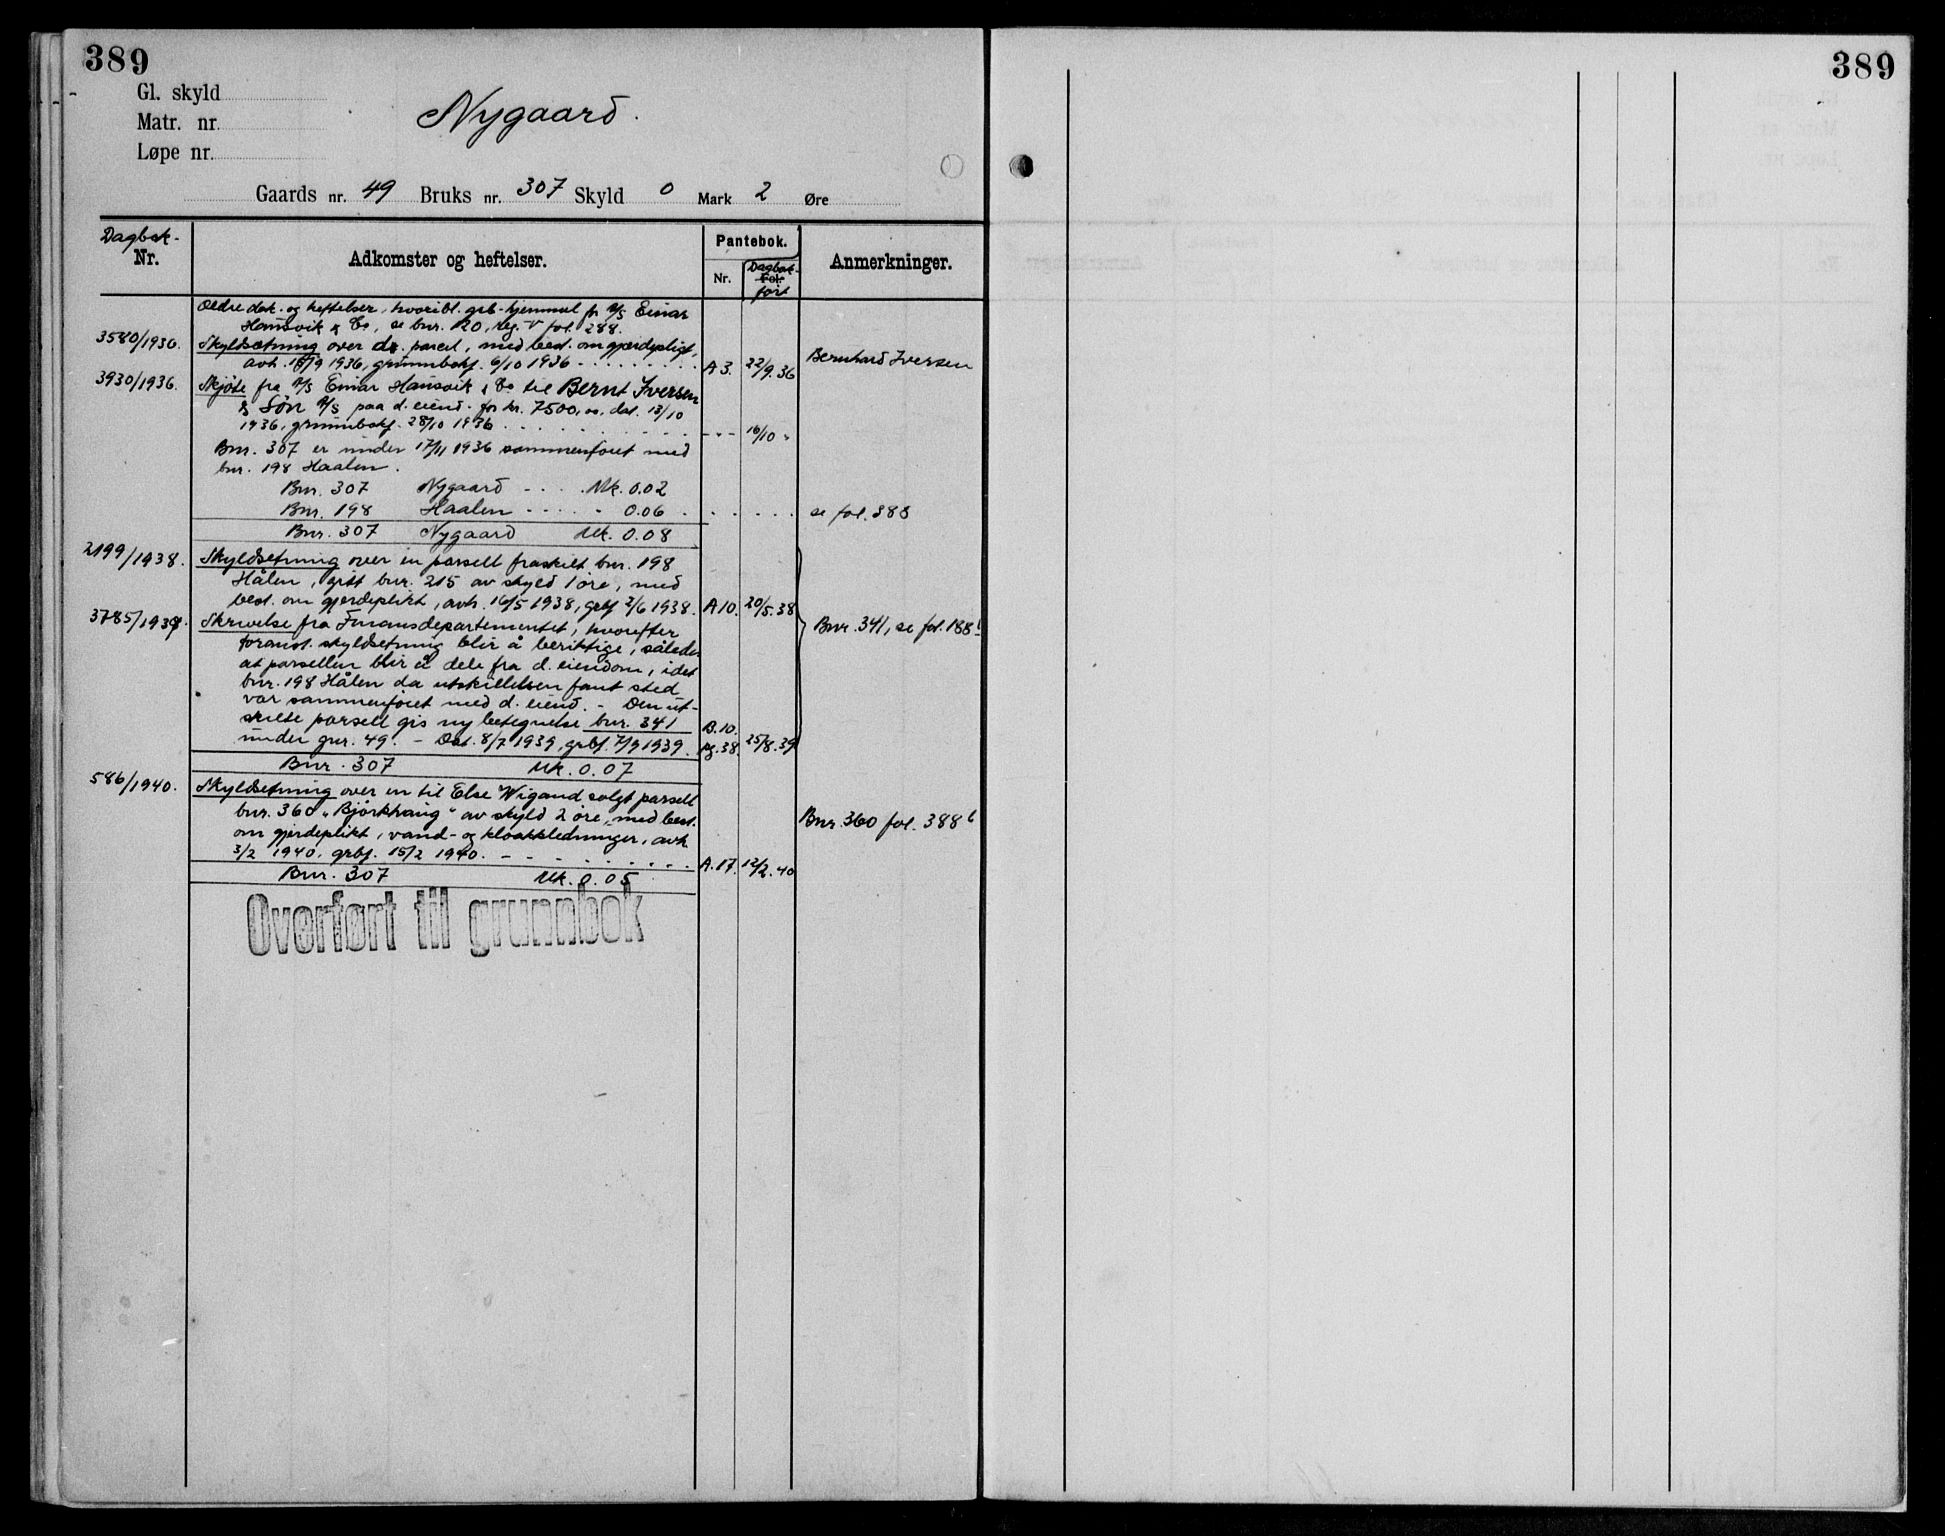 389
389
Gl. skyld
Matr. nr.
Løpe nr.
Nygaard.
Gaards nr. 49 Bruks nr. 307 Skyld 0 Mark 2 Øre
Dagbok-
Nr.
Adkomster og heftelser.
Pantebok.
Nr.
Dagbok-
Fol.
ført
Anmerkninger.
Ældre dok. og heftelser, hvoribl. grb-hjemmel fr A/S Einar
Hansvik & Co, se bnr. 120, reg. V fol. 288.
3580/1936. Skyldsætning over d. parcel, med best. om gjærdepligt,
avh. 15/9 1936, grundbokf. 6/10 1936 - A 3. 22/9.36 Bernhard Iversen
3930/1936. Skjøte fra A/S Einar Hansvik & Co til Bernt Iversen
& Søn A/S paa d. eiend. for kr. 7500,00, dat. 13/10
1936, grundbokf. 28/10 1936 - - - 16/10 "
Bnr. 307 er under 17/11 1936 sammenføiet med
bnr. 198 Haalen.
Bnr. 307 Nygaard - - . . Mk. 0.02
Bnr. 198 Haalen - - - - - 0.06 . . . . . . se fol. 388
Bnr. 307 Nygaard Mk. 0.08
2199/1938. Skyldsetning over en parsell fraskilt bnr. 198
Hålen, gitt bnr. 215 av skyld 1 øre, med
best. om gjerdeplikt, avh. 16/5 1938, grbf 2/6 1938. A 10. 20/5.38
3785/1939. Skrivelse fra Finansdepartementet, hvorefter
Bnr. 341, se fol. 188
foranst. skyldsetning blir å beriktige, således
at parsellen blir å dele fra d. eiendom, idet
bnr. 198 Hålen da utskillelsen fant sted
var sammenføiet med d. eiend. - Den ut-
skilte parsell gis ny betegnelse bnr. 341
under gnr. 49. - Dat. 8/7 1939, grbf. 7/9 1939. B.10. pg. 38. 25/8.39
Bnr. 307 Mk. 0.07
586/1940. Skyldsetning over en til Else Wigand solgt parsell
bnr. 360 "Bjørkhaug" av skyld 2 øre, med best.
Bnr. 360 fol. 388
om gjerdeplikt, vand- og kloakkledninger, avh.
3/2 1940, grbf. 15/2 1940. - - A. 17. 12/2.40
Bnr. 307 Mk. 0.05
Overført til grunnbok